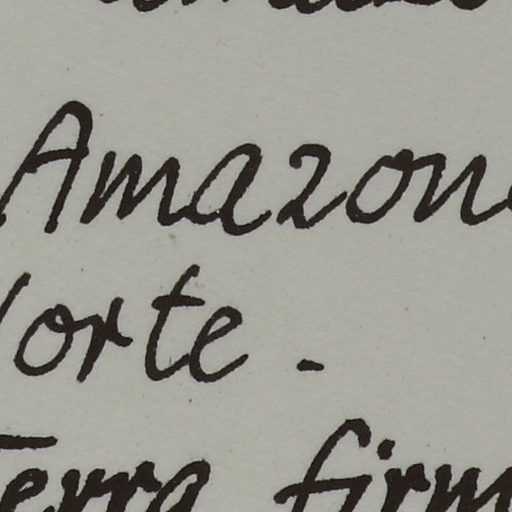 Amazon
orte -
Terra firm